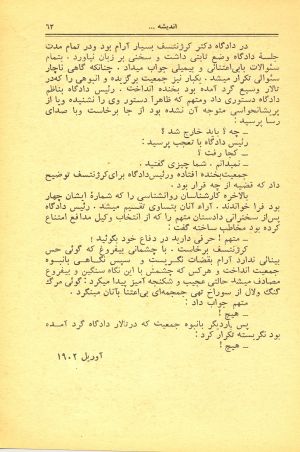 اندیشه ... ۶۳
در دادگاه دکتر کرژنتسف بسیار آرام بود ودر تمام مدت
جلسهٔ دادگاه وضع ثابتی داشت و سخنی بر زبان نیاورد . بتمام
سئوالات بابی‌اعتنائی و بیمیلی جواب میداد . چنانکه گاهی ناچار
سئوالی تکرار میشد . یکبار نیز جمعیت برگزیده و انبوهی را که در
تالار وسیع گرد آمده بود بخنده انداخت . رئیس دادگاه بناظم
دادگاه دستوری داد ومتهم که ظاهراً دستور وی را نشنیده ویا از
پریشانحواسی متوجه آن نشده بود از جا برخاست وبا صدای
رسا پرسید :
ــ چه ؟ باید خارج شد ؟
رئیس دادگاه با تعجب پرسید :
ــ کجا رفت ؟
ــ نمیدانم . شما چیزی گفتید .
جمعیت بخنده افتاده ورئیس‌دادگاه برای کرژنتسف توضیح
داد که قضیه از چه قرار بود .
بالاخره کارشناسان روانشناسی را که شمارهٔ ایشان چهار
بود فرا خواندند . آراء آنان بتساوی تقسیم میشد . رئیس دادگاه
پس از سخنرانی دادستان متهم را که از انتخاب وکیل مدافع امتناع
کرده بود مخاطب ساخته گفت :
ــ متهم ! حرفی دارید در دفاع خود بگوئید !
کرژنتسف برخاست . با چشمانی بیفروغ که گوئی حس
بینائی ندارد آرام بقضات نگریست و سپس نگاهی بانبوه
جمعیت انداخت و هر کس که چشمش با این نگاه سنگین و بیفروغ
مصادف میشد حالتی عجیب و شکنجه آمیز پیدا میکرد : گوئی مرگ
گنگ ولال از سوراخ تهی جمجمه‌ای بی‌اعتنا بآنان مینگرد .
متهم جواب داد :
ــ هیچ !
پس باردیگر بانبوه جمعیت که در تالار دادگاه گرد آمده
بود نگریسته تکرار کرد :
ــ هیچ !
آوریل ۱۹۰۲